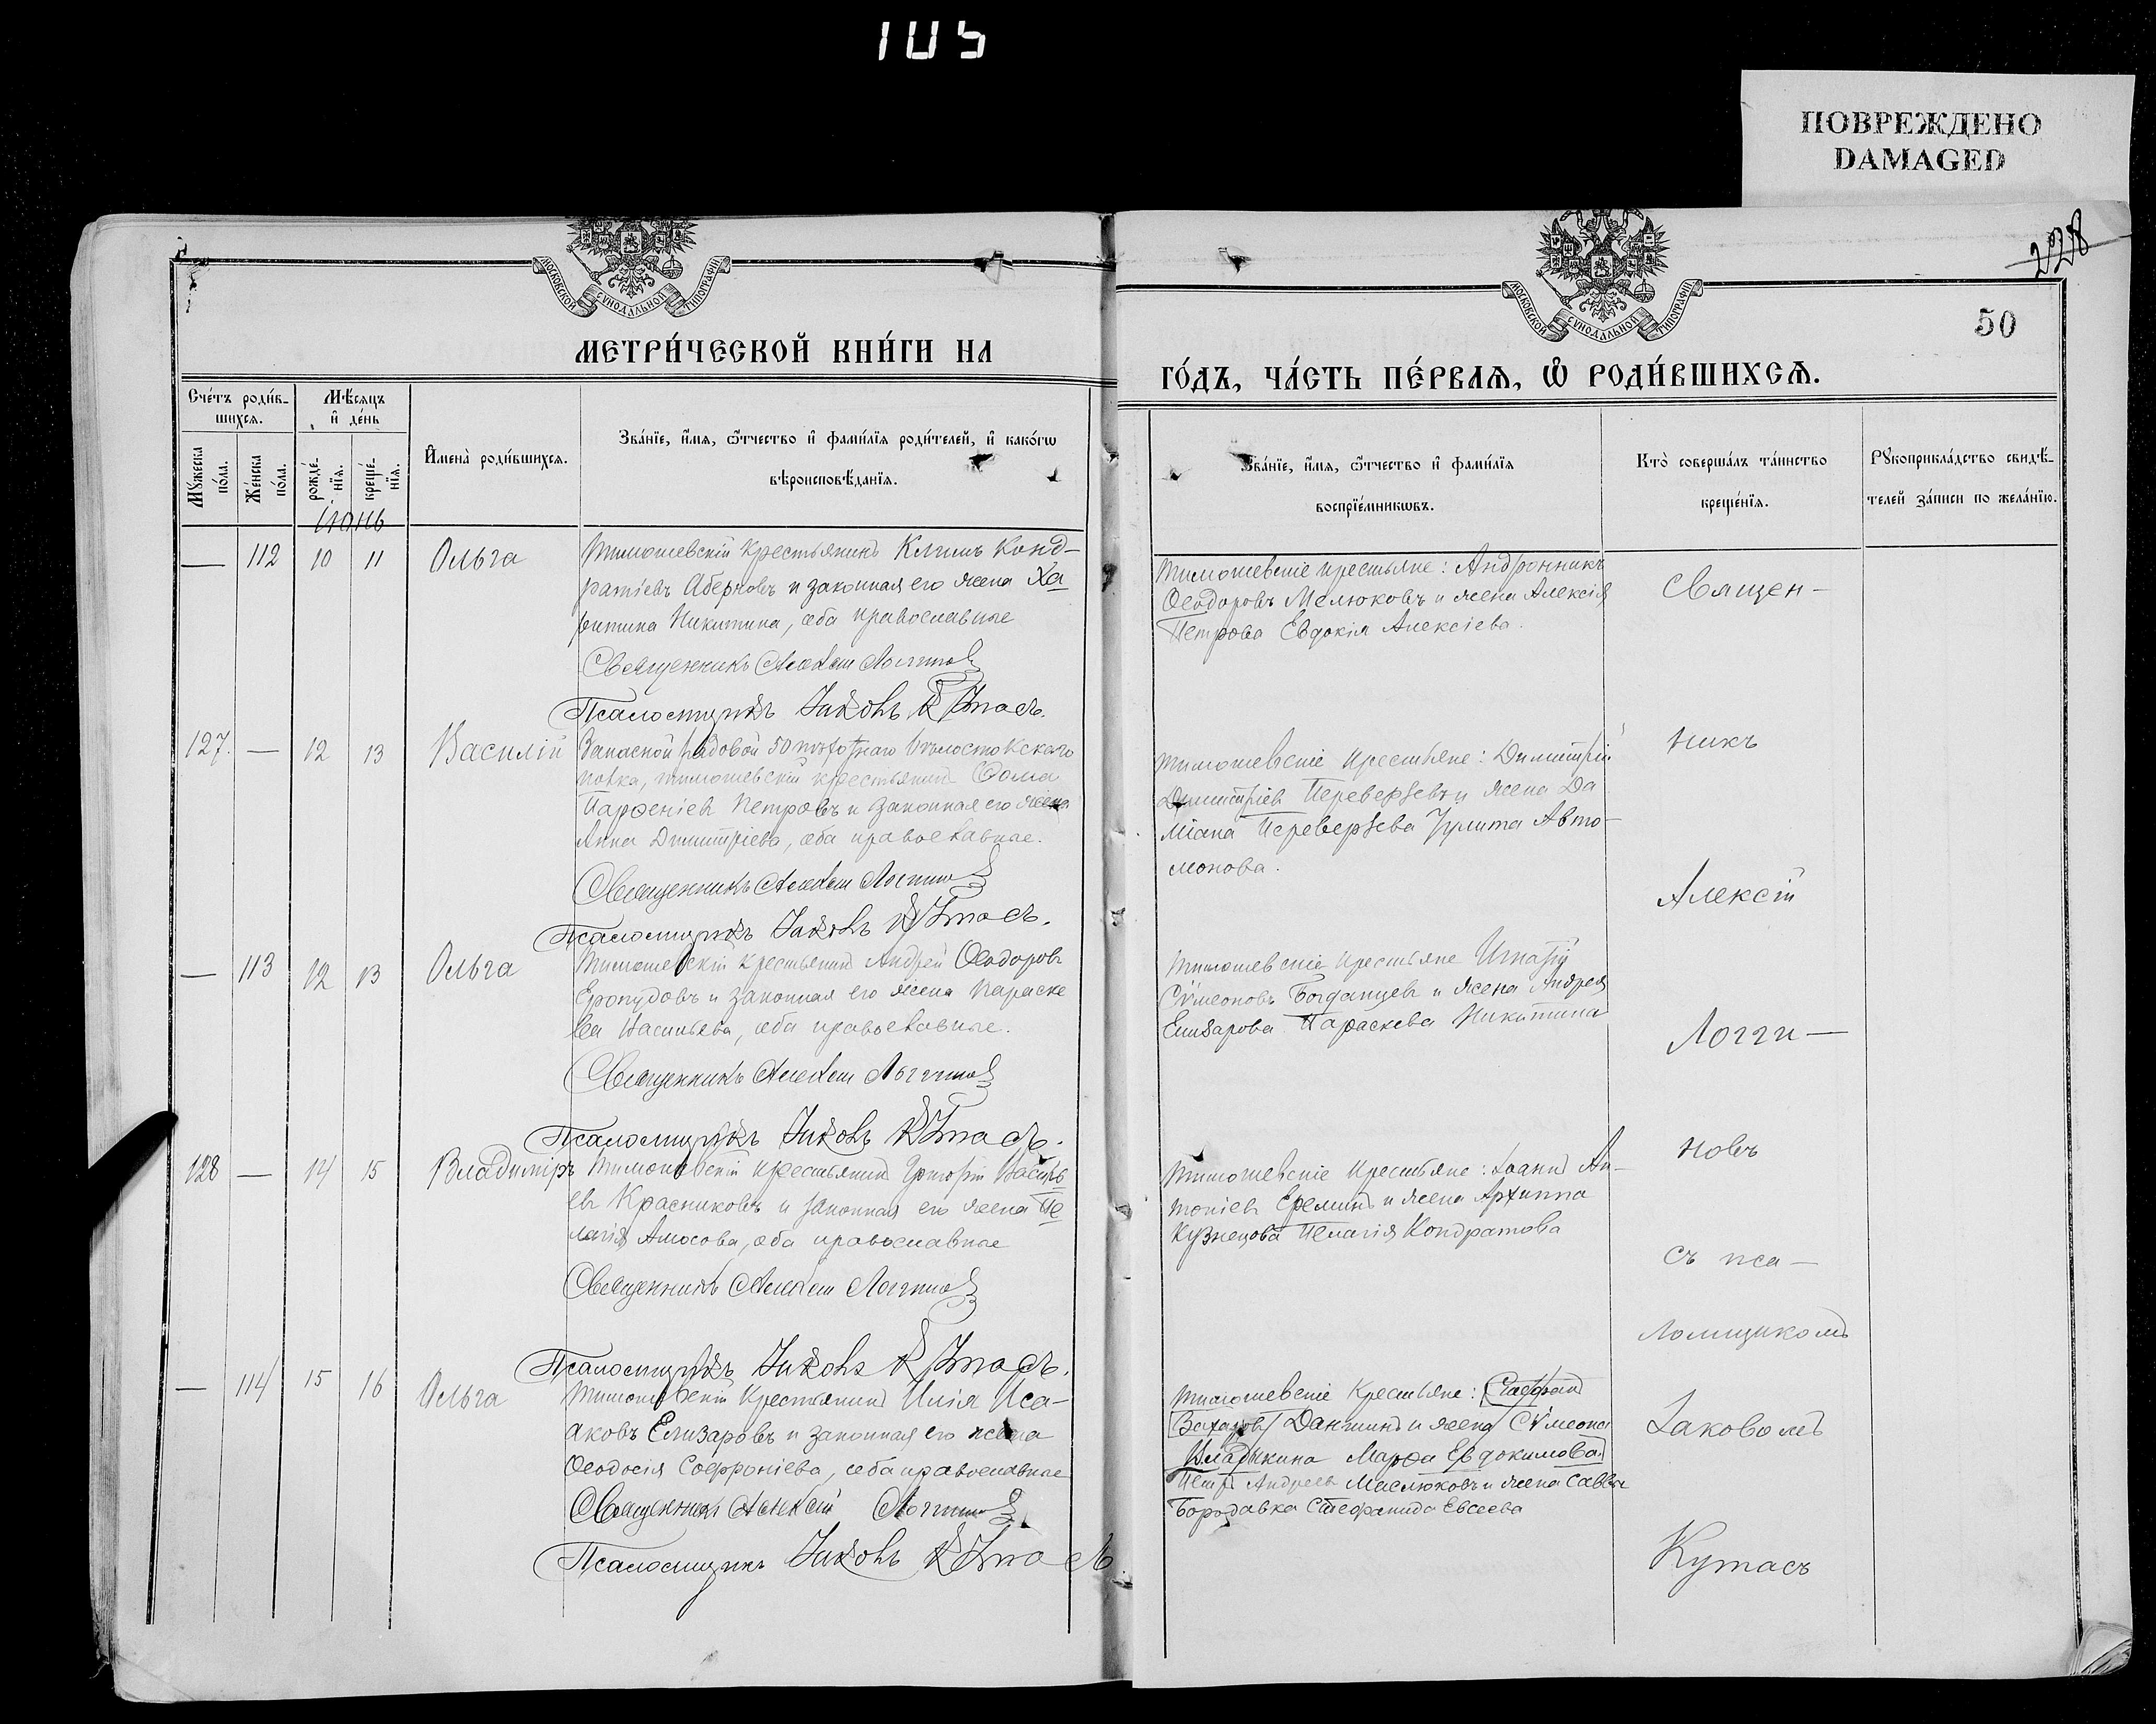 105
ПОВРЕЖДЕНО
DAMAGED
228
50
МОСКОВСКОЙ СѴНОДАЛЬНОЙ ТИПОГРАФІИ
МОСКОВСКОЙ СѴНОДАЛЬНОЙ ТИПОГРАФІИ
МЕТРИ́ЧЕСКОЙ КНИ́ГИ НА
ГО́ДЪ, ЧА́СТЬ ПЕ́РВАЯ, Ѽ РОДИ́ВШИХСЯ.
Сче́тъ роди́в-
шихся.
Мѣ́сяцъ
и҆ де́нь
Мꙋ́жеска
по́ла.
Же́нска
по́ла.
рожде́-
нїя.
креще́-
нїя.
И҆мена̀ роди́вшихся.
Зва́нїе, и҆́мя, ѻ҆́тчество и҆ фами́лїя роди́телей, и҆ како́гѡ
вѣроисповѣ́данїя.
Зва́нїе, и҆́мя, ѻ҆́тчество и҆ фами́лїя
воспрїе́мникѡвъ.
Кто̀ соверша́лъ та́инство
креще́нїя.
Рꙋкоприкла́дство свидѣ́-
телей за́писи по жела́нїю.
Іюнь
— 112 10 11 Ольга
Тимошевскій крестьянинъ Климъ Конд-
ратіевъ Аберновъ и законная его жена Ха
ритина Никитина, оба православные
Священникъ Алексій Логгиновъ
Псаломщикъ Іаковъ Кутасъ.
Тимошевскіе крестьяне: Андроникъ
Ѳеодоровъ Мелюковъ и жена Алексія
Петрова Евдокія Алексіева.
127. — 12 13 Василій
Запасной рядовой 50 пѣхотнаго Бѣлостокскаго
полка, тимошевскій крестьянинъ Ѳома
Парѳеніевъ Петровъ и законная его жена
Анна Димитріева, оба православные.
Священникъ Алексій Логгиновъ
Псаломщикъ Іаковъ Кутасъ.
Тимошевскіе крестьяне: Димитрій
Димитріевъ Переверзевъ и жена Да
міана Переверзева Іулита Авто-
монова.
— 113 12 13 Ольга
Тимошевскій крестьянинъ Андрей Ѳеодоровъ
Еропудовъ и законная его жена Параске
ва Васильева, оба православные.
Священникъ Алексій Логгиновъ
Псаломщикъ Іаковъ Кутасъ.
Тимошевскіе крестьяне Игнатій
Сѵмеоновъ Богданцевъ и жена Андрея
Елизарова Параскева Никитина
128 — 14 15 Владиміръ
Тимошевскій крестьянинъ Григорій Василь
евъ Красниковъ и законная его жена Пе
лагія Амосова, оба православные
Священникъ Алексій Логгиновъ
Псаломщикъ Іаковъ Кутасъ.
Тимошевскіе крестьяне: Іоаннъ Ан-
тоніевъ Ереминъ и жена Архиппа
Кузнецова Пелагія Кондратова
— 114 15 16 Ольга
Тимошевскій крестьянинъ Илія Иса-
аковъ Елизаровъ и законная его жена
Ѳеодосія Софроніева, оба православные
Священникъ Алексій Логгиновъ
Псаломщикъ Іаковъ Кутасъ
Тимошевскіе крестьяне: Стефанъ
Захаровъ Даншинъ и жена Сѵмеона
Владыкина Марѳа Евдокимова
Петръ Андреевъ Маслюковъ и жена Саввы
Бородавка Стефанида Евсеева
Священ-
никъ
Алексій
Логги-
новъ
съ пса-
ломщикомъ
Іаковомъ
Кутасъ